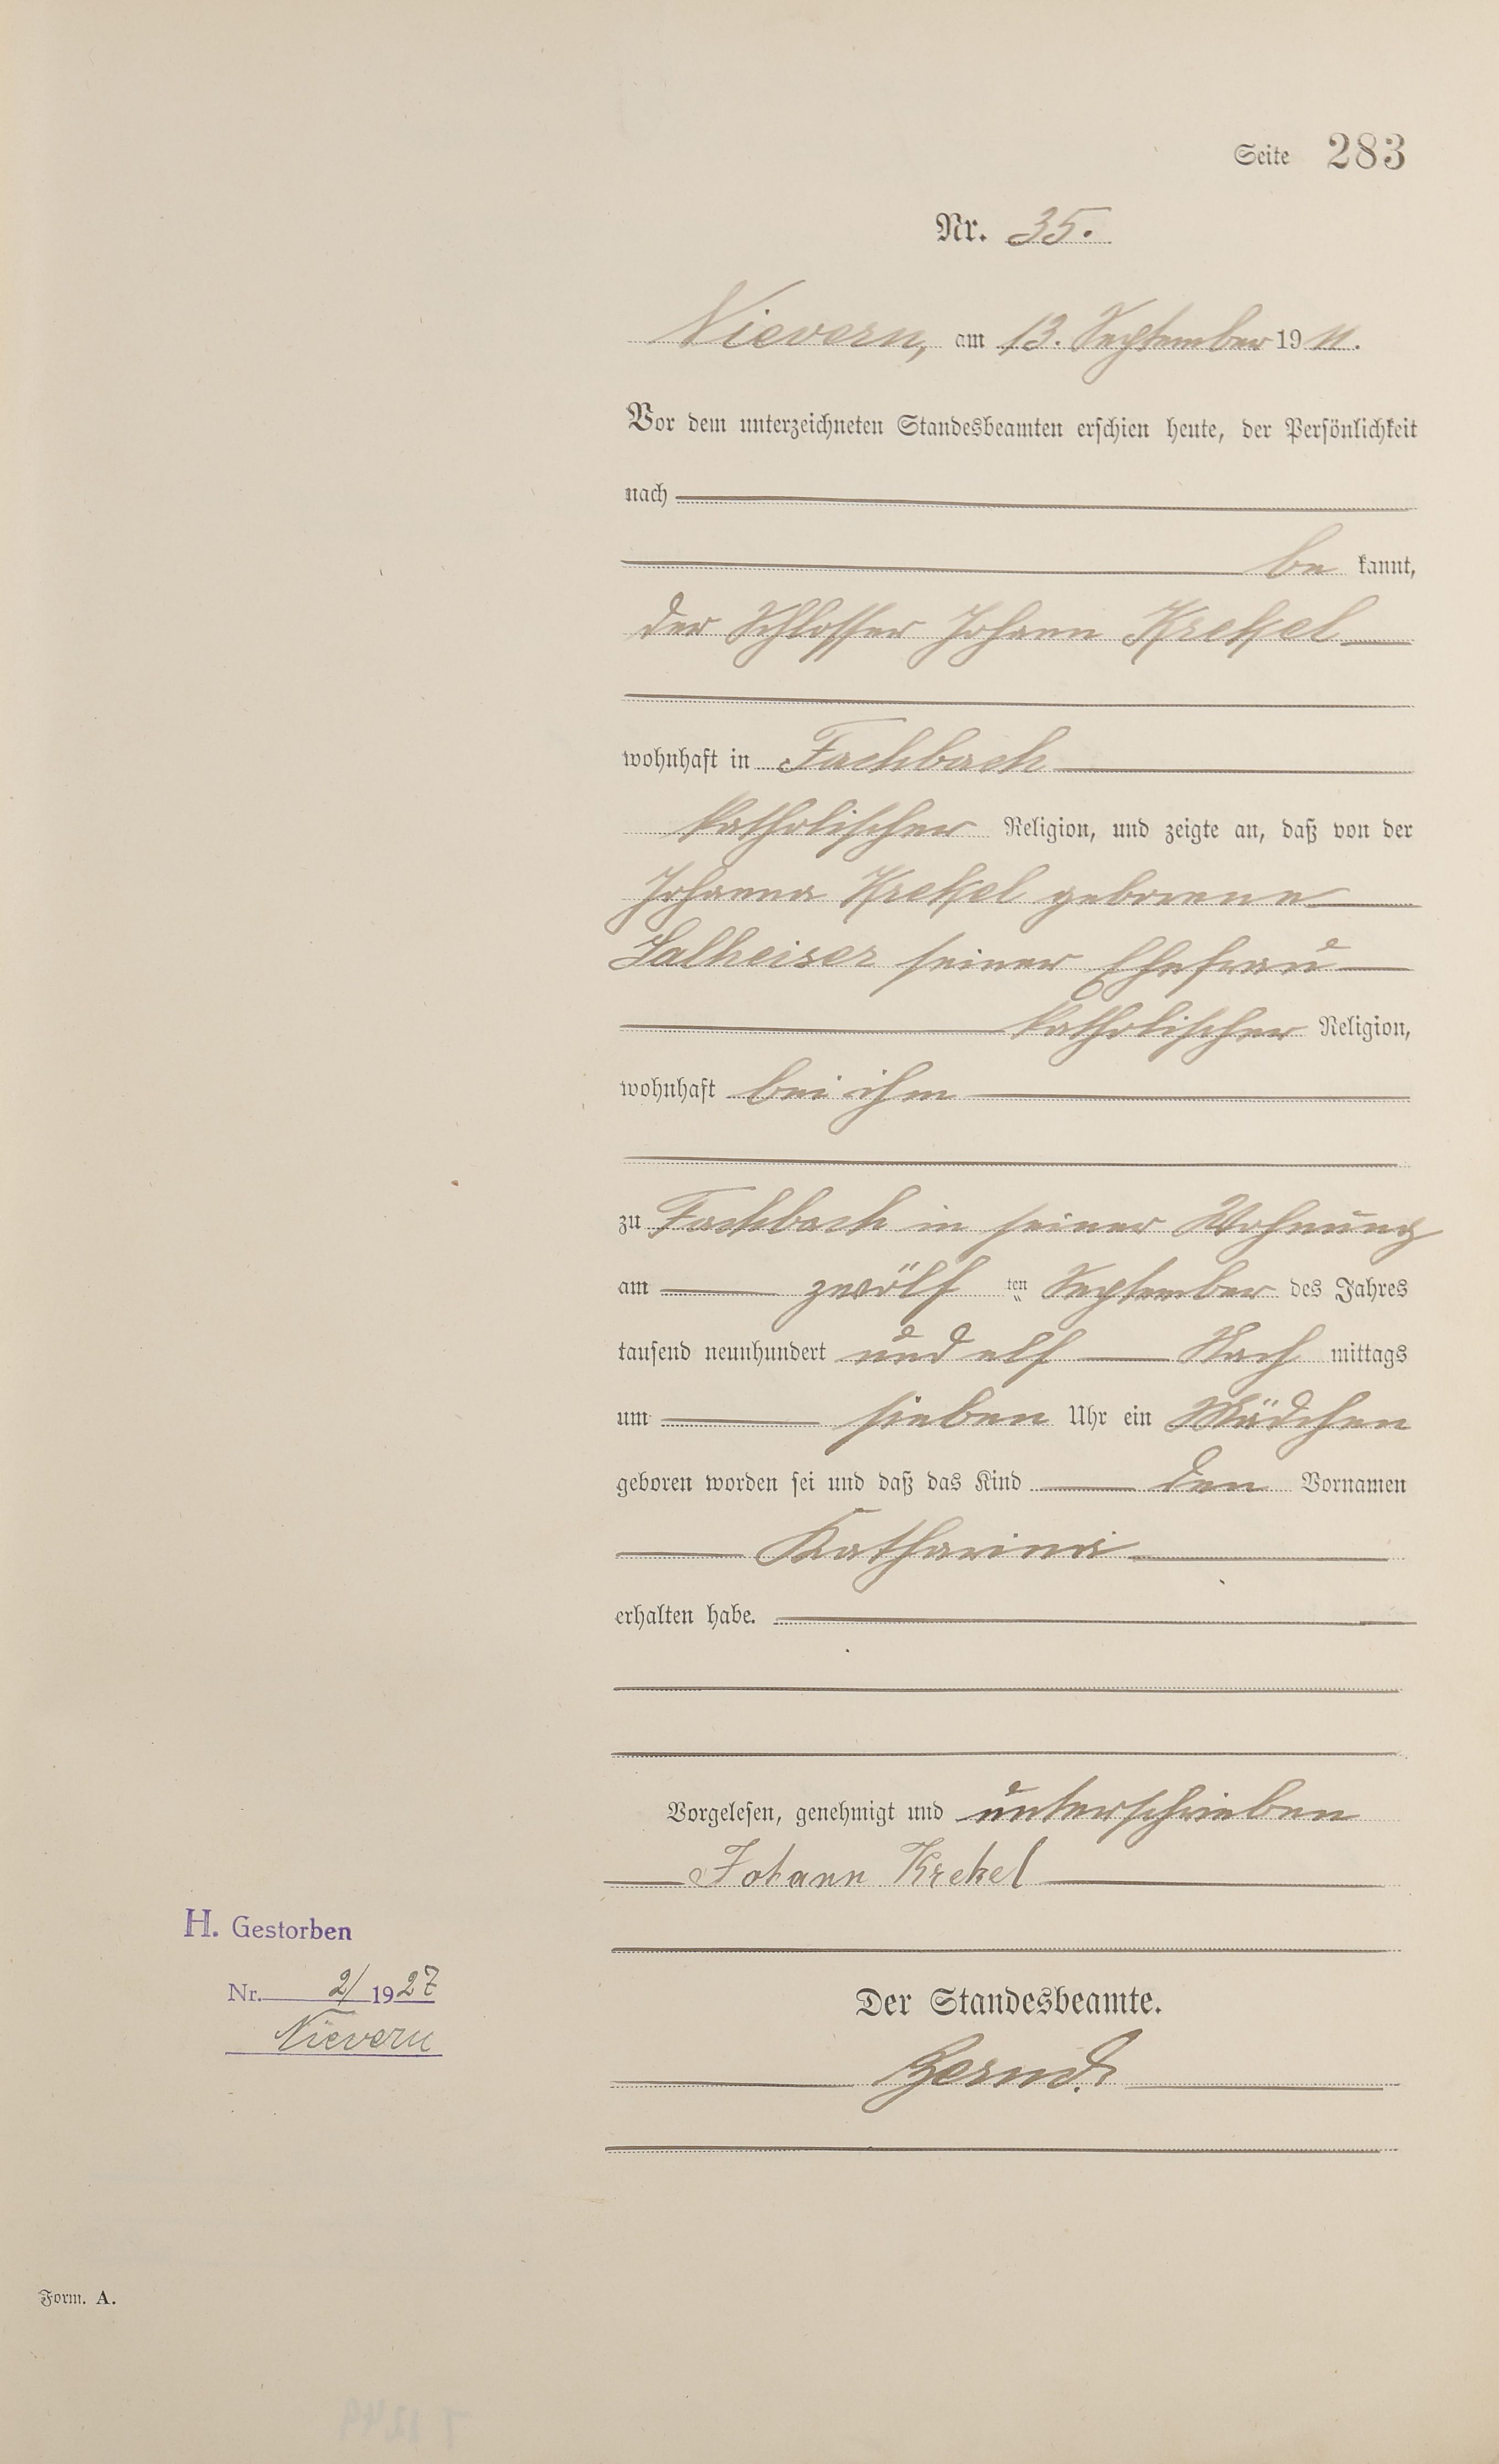 Seite 283
Nr. 35.
Nievern, am 13. September 1911.
Vor dem unterzeichneten Standesbeamten erschien heute, der Persönlichkeit
nach
be kannt,
der Schlosser Johann Krekel
wohnhaft in Fachbach
katholischer Religion, und zeigte an, daß von der
Johanna Krekel geborene
Salheiser seiner Ehefrau
katholischer Religion,
wohnhaft bei ihm
zu Fachbach in seiner Wohnung
am zwölf ten September des Jahres
tausend neunhundert und elf Nach mittags
um sieben Uhr ein Mädchen
geboren worden sei und daß das Kind den Vornamen
Katharina
erhalten habe.
Vorgelesen, genehmigt und unterschrieben
Johann Krekel
H. Gestorben
Nr. 2/1927
Nievern
Der Standesbeamte.
Form. A.